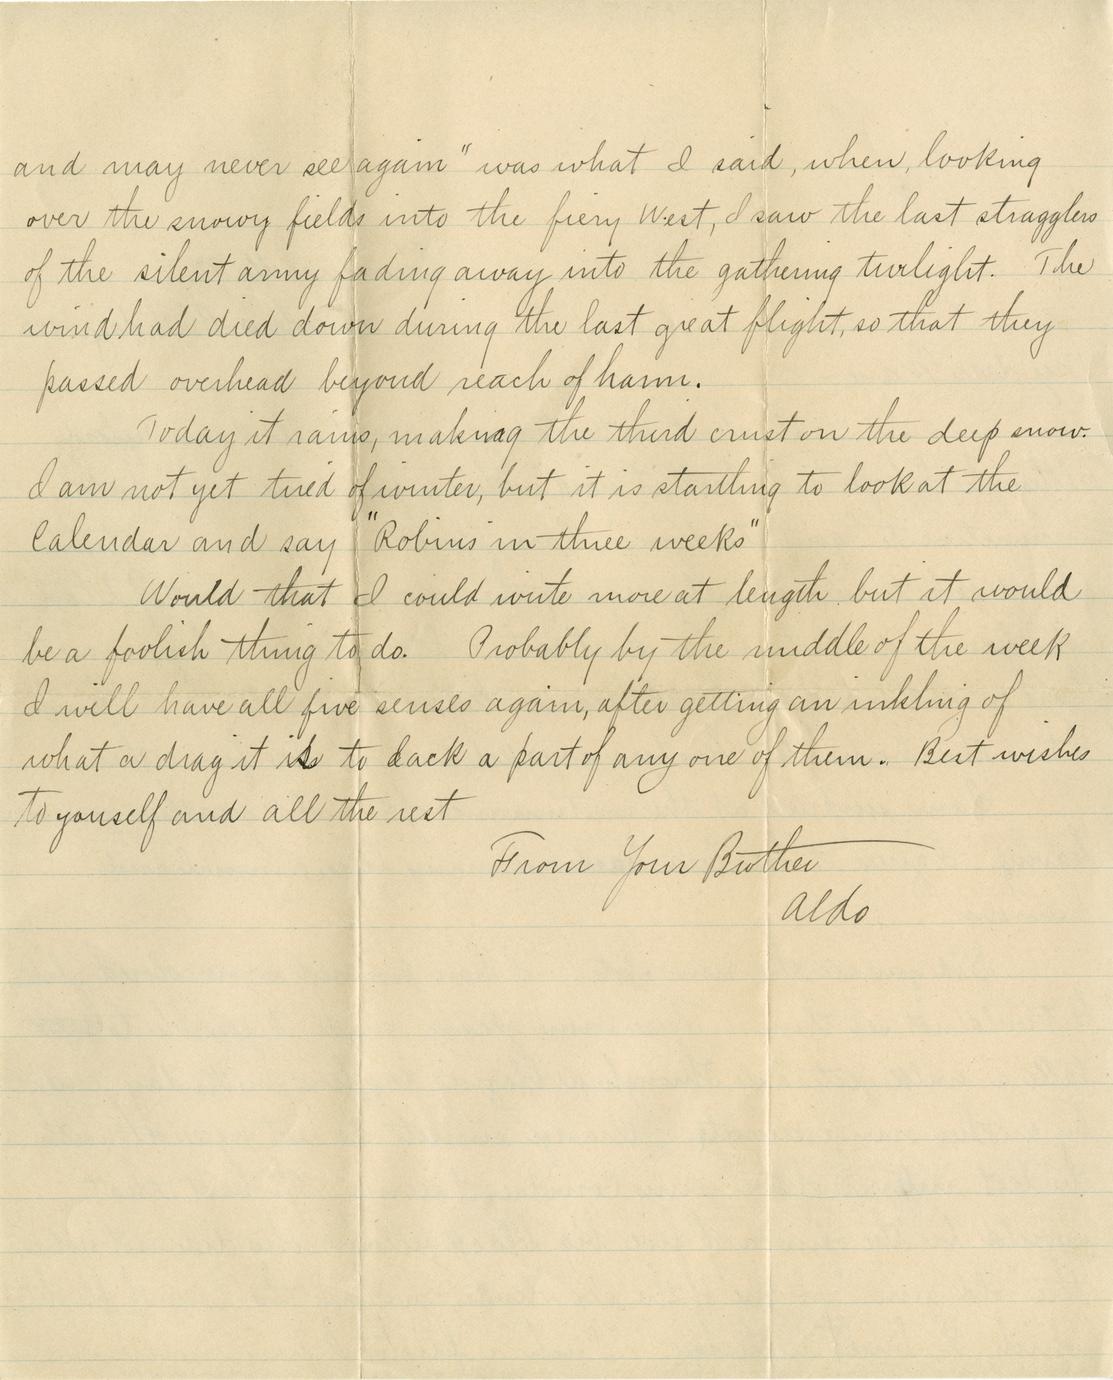 and may never see again" was what I said, when, looking
over the snowy fields into the fiery West, I saw the last stragglers
of the silent army fading away into the gathering twilight. The
wind had died down during the last great flight, so that they
passed overhead beyond reach of harm.
Today it rains, making the third crust on the deep snow.
I am not yet tired of winter, but it is startling to look at the
Calendar and say "Robins in three weeks"
Would that I could write more at length but it would
be a foolish thing to do. Probably by the middle of the week
I will have all five senses again, after getting an inkling of
what a drag it is to lack a part of any one of them. Best wishes
to yourself and all the rest
From Your Brother
Aldo